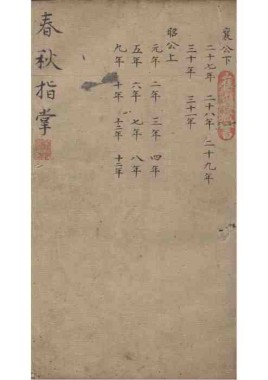 襄公下
二十七年 二十八年 二十九年
三十年 三十一年
昭公上
元年 二年 三年 四年
五年 六年 七年 八年
九年 十年 十一年 十二年
春秋指掌